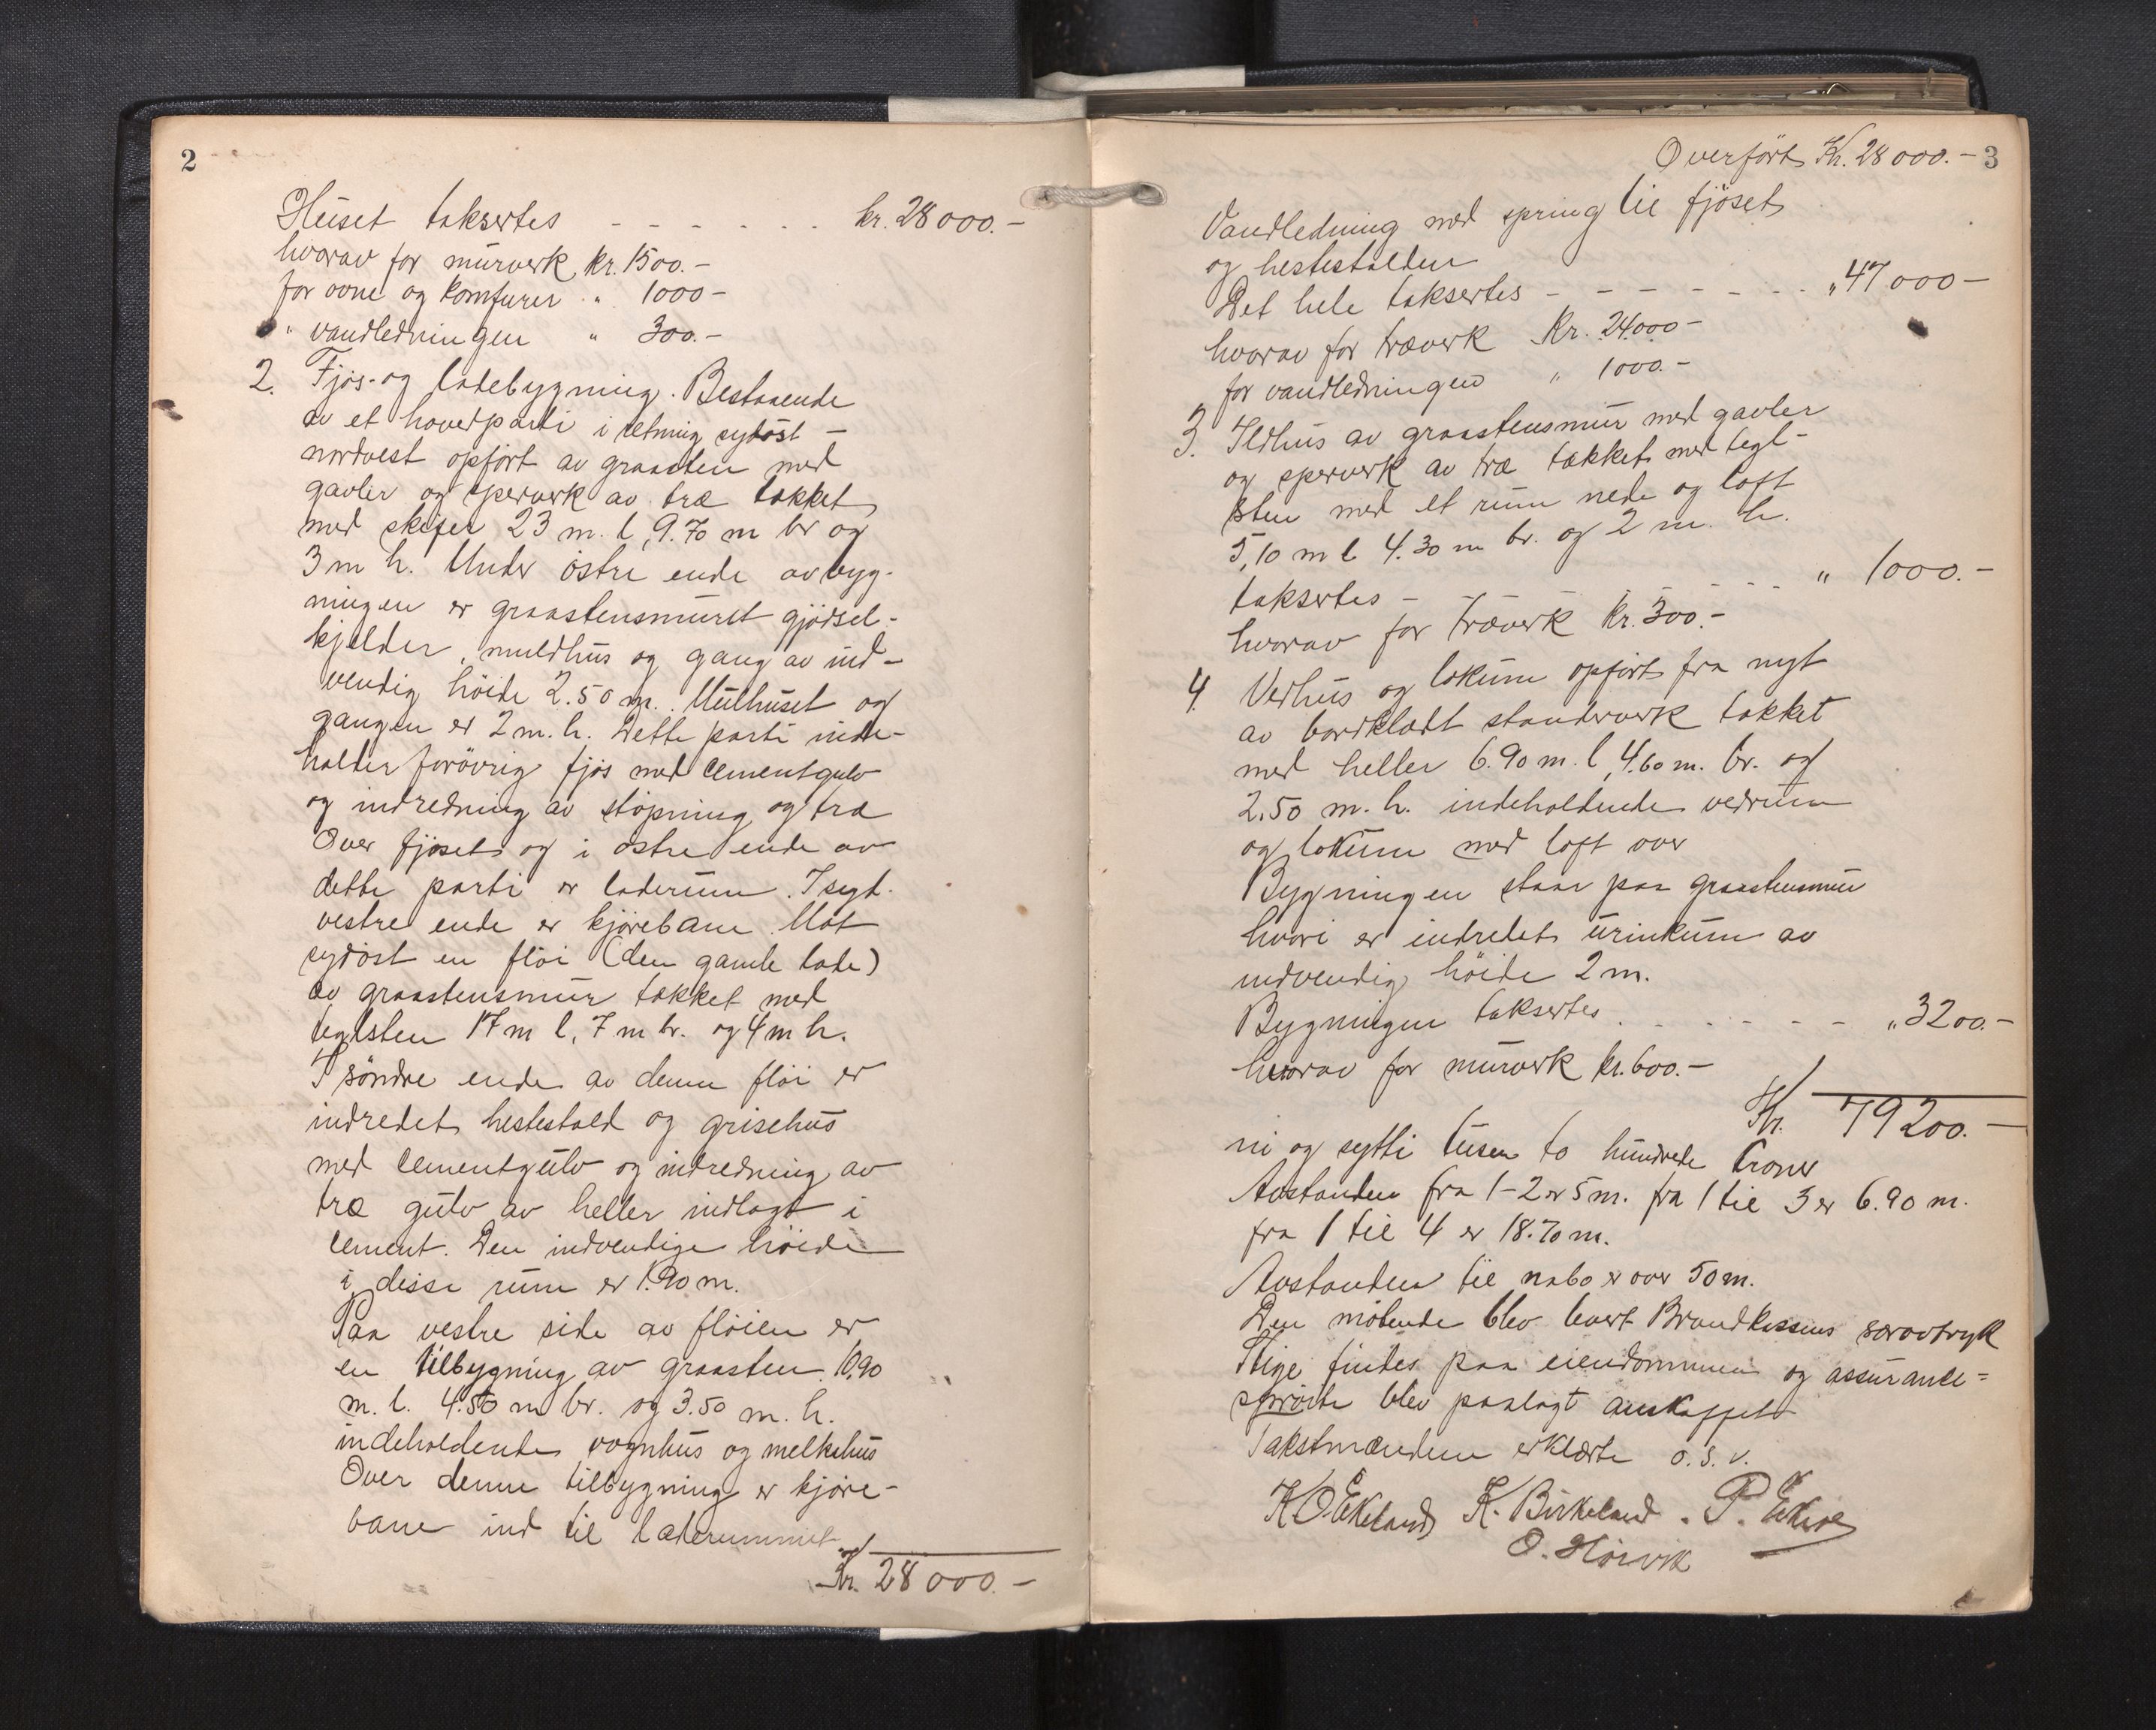 2
Huset taksertes - - - - - - kr. 28000.-
hvorav for murverk kr. 1500.-
for ovne og komfurer " 1000-
" vandledningen " 300.-
2. Fjøs- og ladebygning. Bestaaende
av et hovedparti i retning sydøst -
nordvest opført av graasten med
gavler og sperverk av træ tækket
med skifer 23 m. l, 9.70 m br og
3 m h. Under østre ende av byg-
ningen er graastensmuret gjødsel-
kjelder, muldhus og gang av ind-
vendig høide 2.50 m. Mulhuset og
gangen er 2 m. h. Dette parti inde-
holder forøvrig fjøs med cementgulv
og indredning av støpning og træ
Over fjøset og i østre ende av
dette parti er laderum. I syd-
vestre ende er kjørebane. Mot
sydøst en fløi (den gamle lade)
av graastensmur tækket med
teglsten 17 m l, 7 m br. og 4 m h.
I søndre ende av denne fløi er
indredet hestestald og grisehus
med cementgulv og indredning av
træ gulv av heller indlagt i
cement. Den indvendige høide
i disse rum er 1.90 m.
Paa vestre side av fløien er
en tilbygning av graasten 10.90
m. l. 4.50 m br. og 3.50 m. h.
indeholdende vognhus og melkehus
Over denne tilbygning er kjøre-
bane ind til laderummet
Kr. 28000.-
Overført Kr. 28000.- 3
Vandledning med spring til fjøset
og hestestalden
Det hele taksertes - - - - - - - " 47000-
hvorav for træverk Kr. 24000-
for vandledningen " 1000.-
3. Ildhus av graastensmur med gavler
og sperverk av træ tækket med tegl-
sten med et rum nede og loft
5,10 m l 4.30 m br. og 2 m. h.
taksertes - - - - - " 1000.-
hvorav for træverk Kr. 300.-
4. Vedhus og lokum opført fra nyt
av bordklædt standerverk tækket
med heller 6.90 m. l, 4.60 m. br. og
2.50 m. h. indeholdende vedrum
og lokum med loft over
Bygningen staar paa graastensmur
hvori er indredet urinkum av
indvendig høide 2 m.
Bygningen taksertes - - - - - - " 3200.-
hvorav for murverk kr. 600.-
Kr. 79200.-
ni og sytti tusen to hundrede kroner
Avstanden fra 1-2 er 5 m. fra 1 til 3 er 6.90 m.
fra 1 til 4 er 18.70 m.
Avstanden til nabo er over 50 m.
Den møtende blev levert Brandkassens særavtryk
Stige findes paa eiendommen og assurance=
sprøite blev paalagt anskaffet
Takstmændene erklærte o. s. v.
K O Ekeland K. Birkeland. P.
O. Hørvik